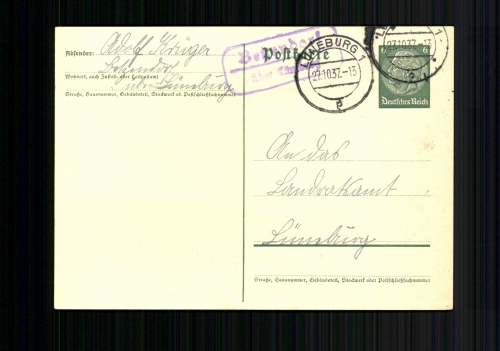 Absender: Adolf Krüger
Wohnort, auch Zustell- oder Leitpostamt
Lüneburg
Straße, Hausnummer, Gebäudeteil, Stockwerk od. Postschließfachnummer
über
Postkarte
LÜNEBURG 1
27.10.37.-13
27.10.37.-13
6
6
Deutsches Reich
An das
Landratsamt
Lüneburg
Straße, Hausnummer, Gebäudeteil, Stockwerk oder Postschließfachnummer